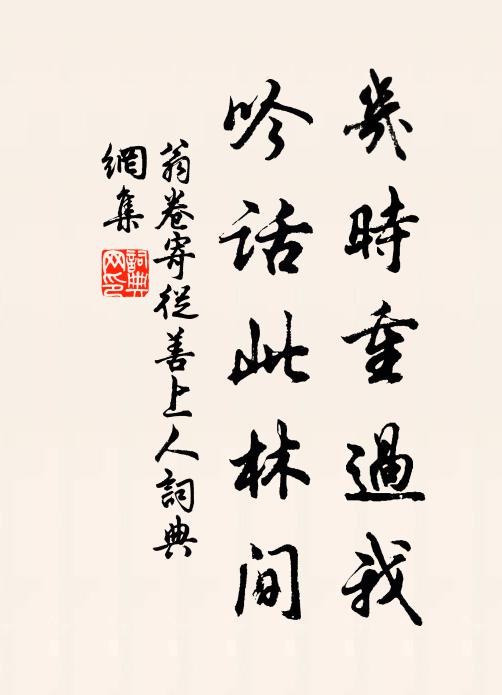 幾時重過我
吟話此林間
翁卷寄從善上人詞典
網集
詞典
网印